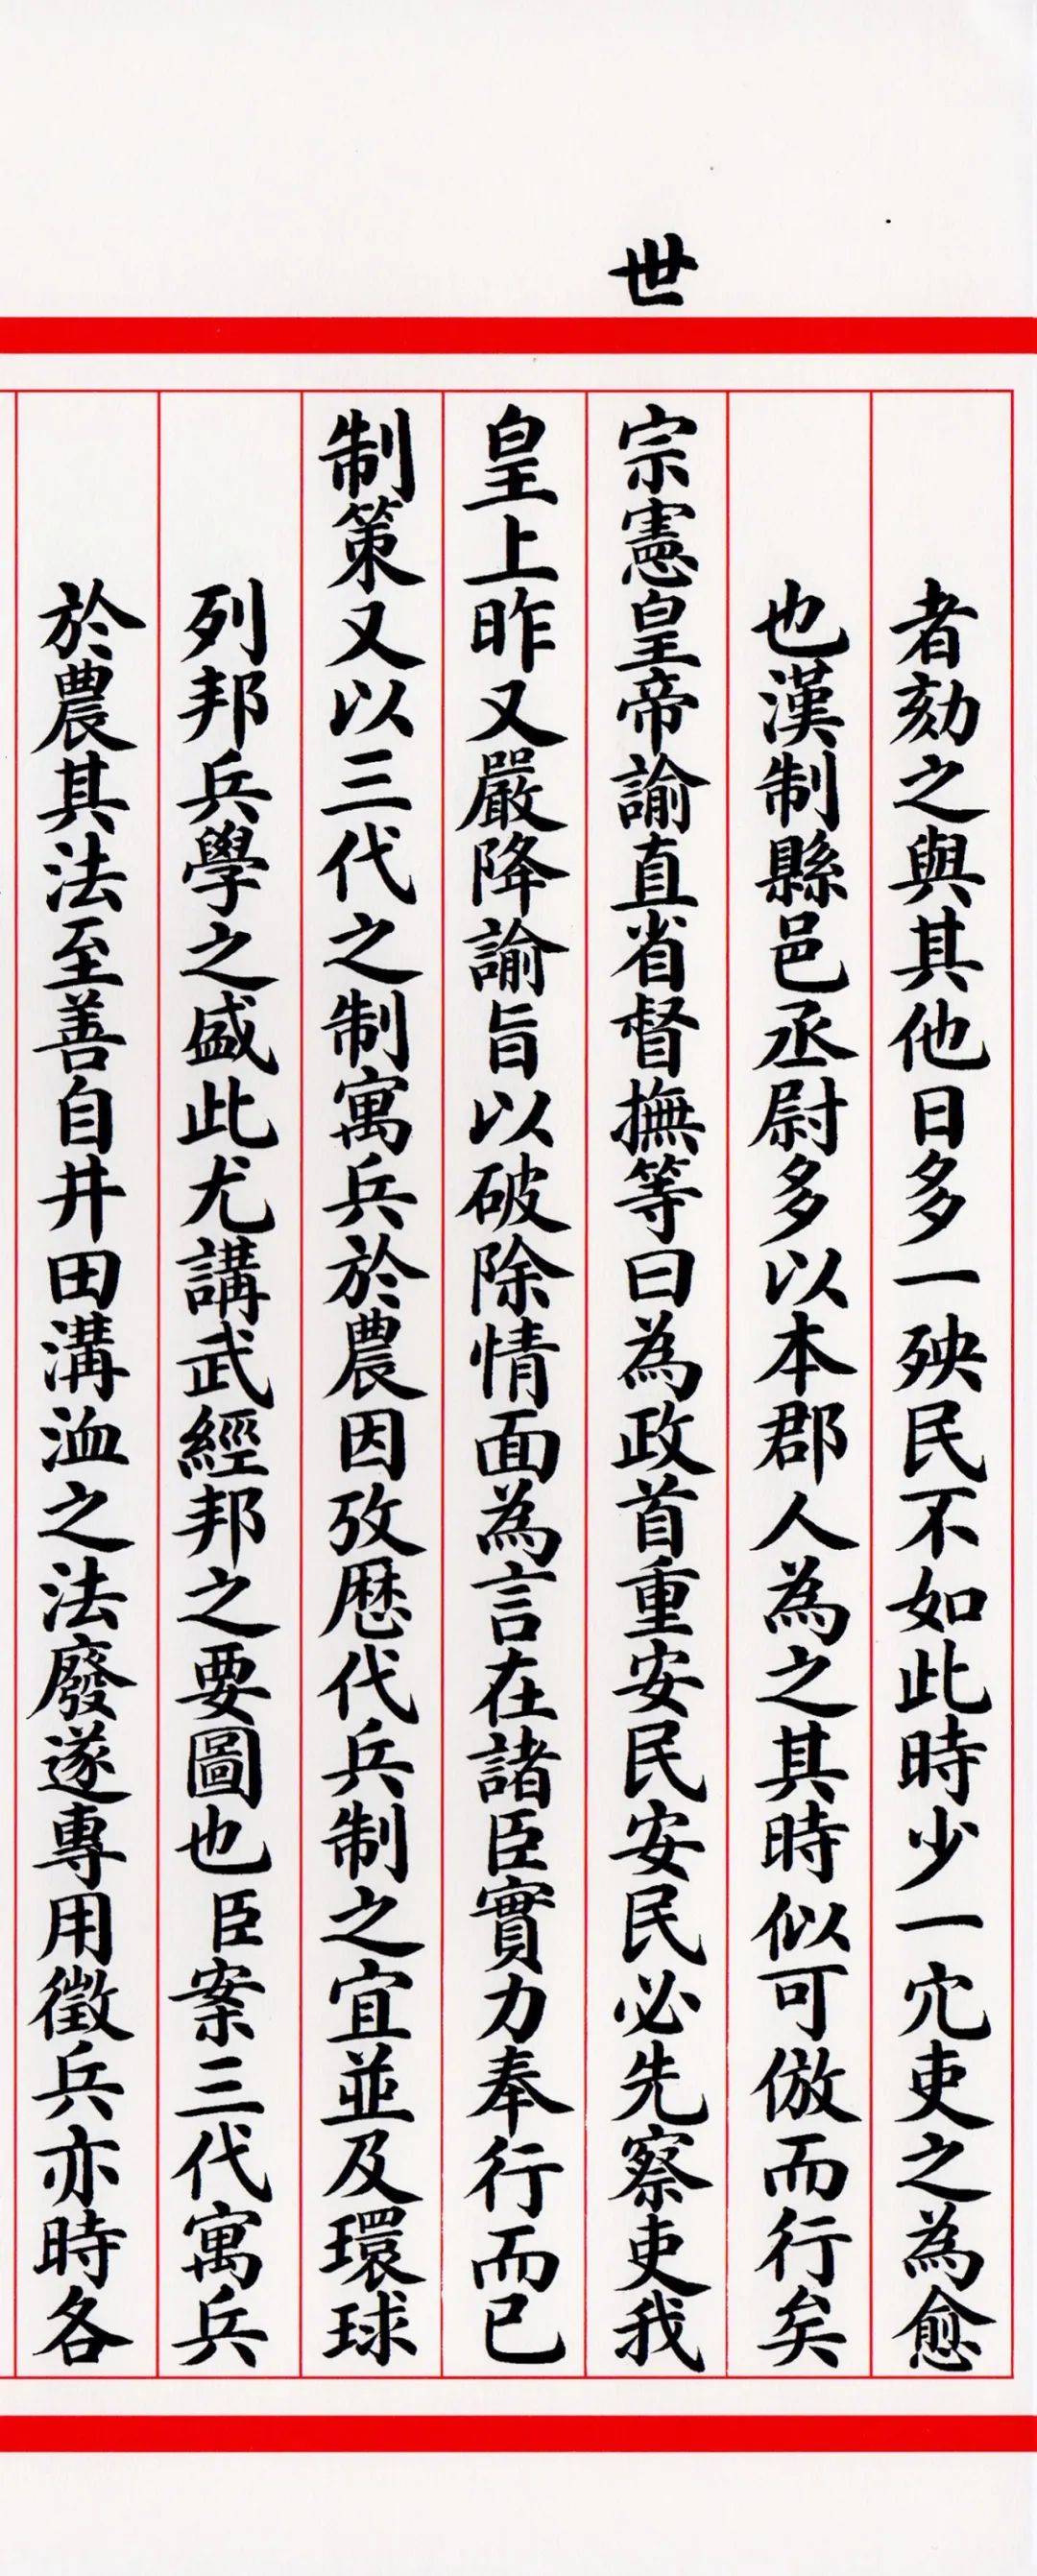 者劾之與其他日多一殃民不如此時少一宂吏之為愈
也漢制縣邑丞尉多以本郡人為之其時似可倣而行矣
世宗憲皇帝諭直省督撫等曰為政首重安民安民必先察吏我
皇上昨又嚴降諭旨以破除情面為言在諸臣實力奉行而已
制策又以三代之制寓兵於農因攷歷代兵制之宜並及環球
列邦兵學之盛此尤講武經邦之要圖也臣案三代寓兵
於農其法至善自井田溝洫之法廢遂專用徵兵亦時各